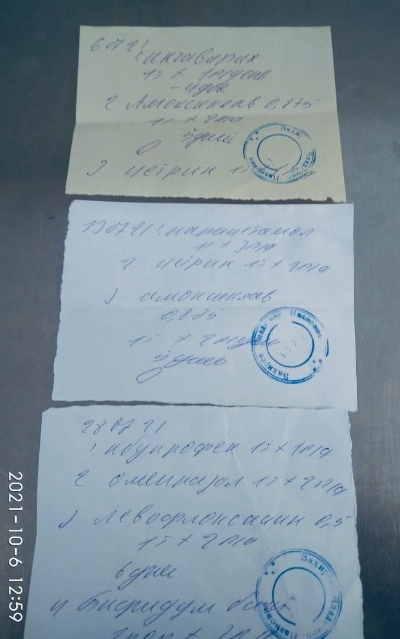 6 07 21
1 ингавирин
1т х 1р/день
2 Амоксиклав 0,875
1т х 2р/д
5 дней
3 цетрин 1т х 1
13 07 21 1. парацетамол
1т х 3р/д
2 цетрин 1т х 1р/д
3 амоксиклав
0,875
1т х 2р
5 дней
28 07 21
1. ибупрофен 1т х 1р/д
2 омепразол 1т х 2р/д
3 левофлоксацин 0,5
1т х 2р/д
6 дней
4 бифидум
2021-10-6 12:59